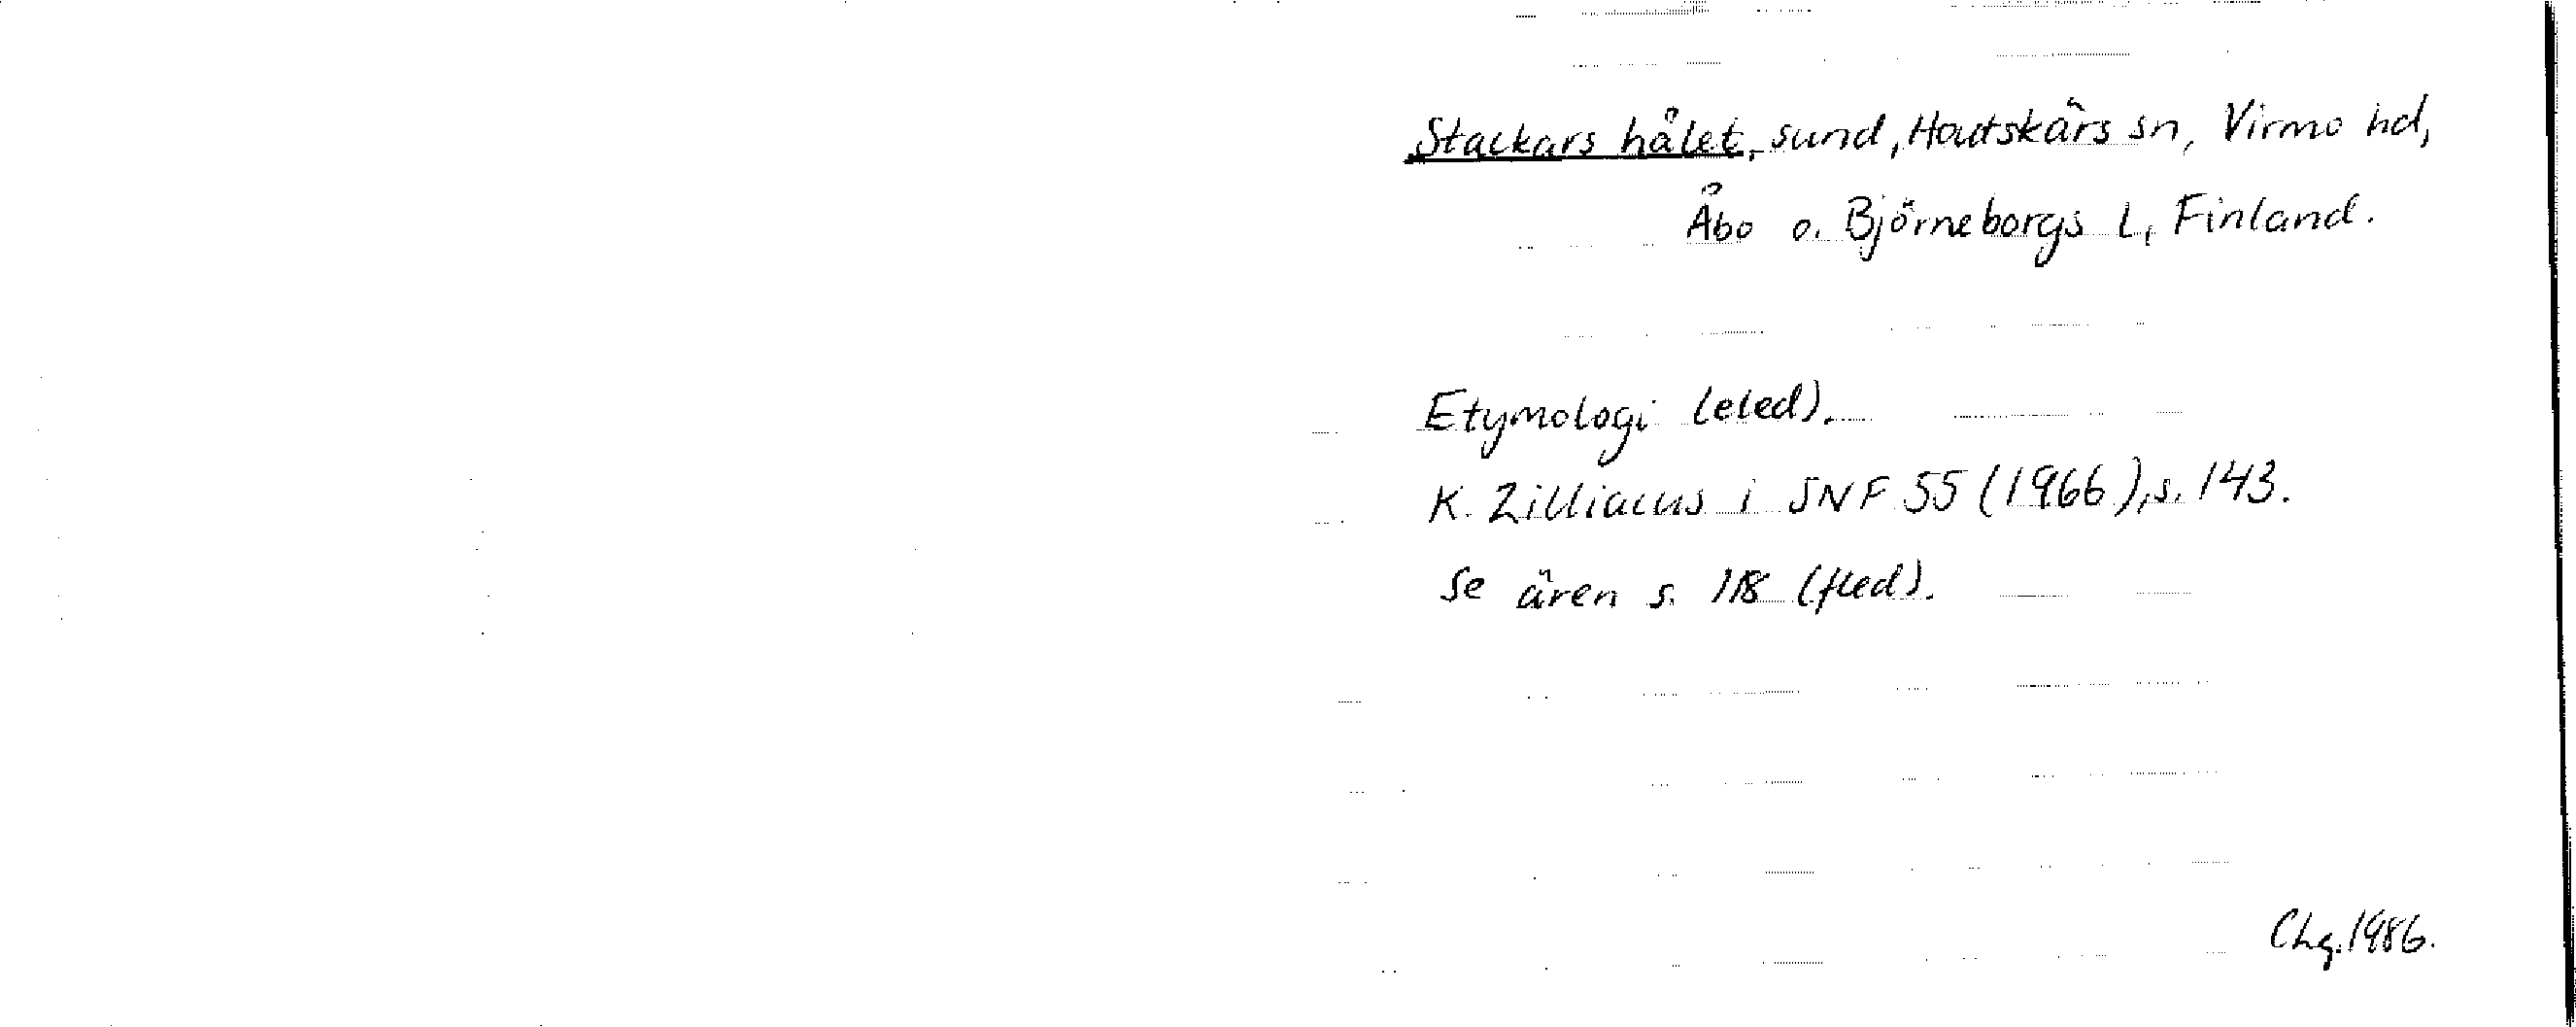 Stackars hålet, sund, Houtskärs sn, Virmo hd,
Åbo o. Björneborgs l, Finland.
Etymologi (eled).
K. Zilliacus i SNF 55 (1966), s. 143.
Se även s. 118 (fled).
Chg. 1986.